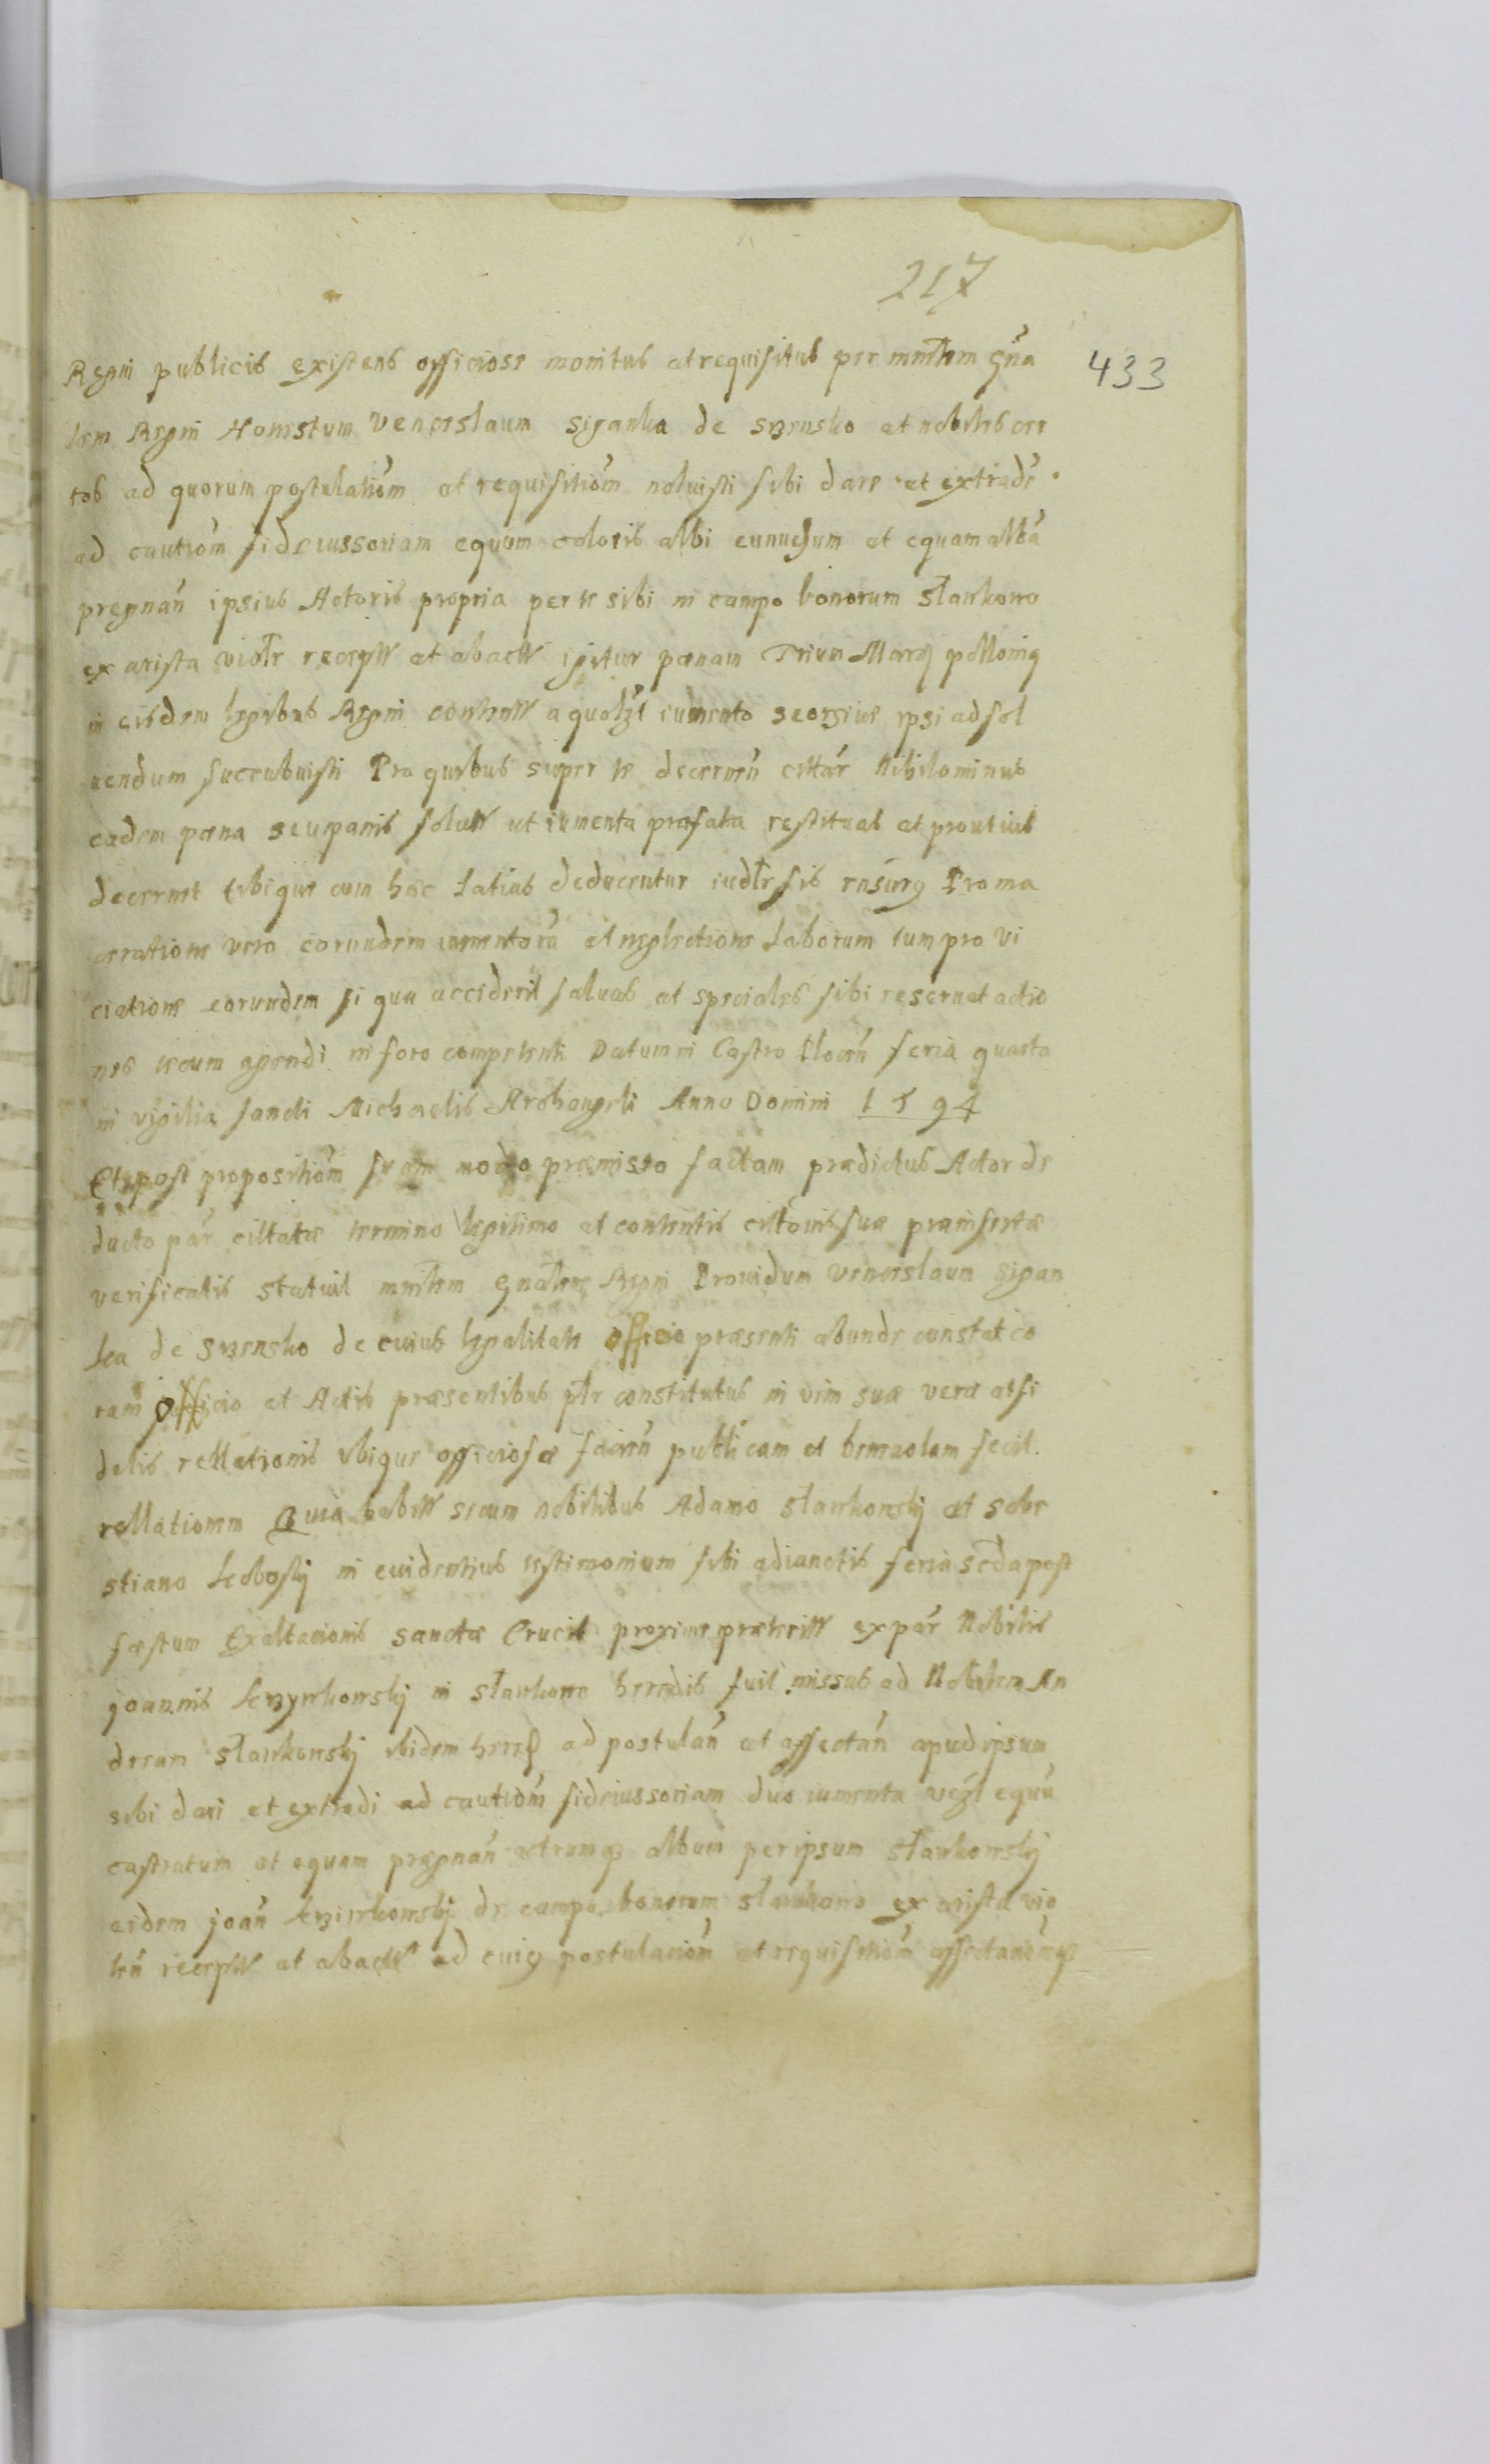 217
433
Regni publicis existens officiose monitus et requisitus per mnrłem gña
lem Regni Honestum Venceslaum Siganka de Srzensko et nobiles cer
tos ad quorum postulatiom̃ et requisitiom̃ noluisti sibi dare et extradr̃
ad cautiom̃ fideiussoriam equum coloris albi eunuchum et equam albã
pregnañ ipsius Actoris propria per te sibi in campo bonorum Sławkowo
ex arista violr receptt et abactt igitur pœnam Trium Marcz pollonicz
in eisdem legibus Regni contentt a quolzt iumento seorsiue ipsi ad sol
uendum succubuisti Pro quibus super te decerneñ cittar̃ Nihilominus
eadem pœna seu pœnis solutt ut iumenta præfata restituas et prout ius
decernet tibi que cum hoc latius deducentur iudłr sis rnsurg Pro ma
ceratione vero eorundem iumentorũ et neglectione Laborum tum pro vi
ciatione eorundem si qua acciderit saluas et speciales sibi reseruat actio
nes tecum agendi in foro competenti Datum in Castro Płoceñ feria quarta
in vigilia sancti Michaelis Archangeli Anno Domini 1594
Et post propositiom̃ suam modo præmisso factam prædictus Actor de
ducto par̃ cittatæ termino legitimo et contentis cittõnis suæ præinsertæ
verificatis statuit mnrłem gnałem Regni Prouidum Venceslaum Sigan
ka de Srzensko de cuius legalitate officio præsenti abunde constat co
ram officio et Actis præsentibus płr constitutus in vim suæ veræ et fi
delis rellationis vbique officiose facieñ publicam et beneuolam fecit.
rellationem Quia habitt secum nobilibus Adamo Sławkowskÿ et Seba
stiano Leboskÿ in euidentius testimonium sibi adiunctis feria scda post
fæstum Exaltacionis Sanctæ Crucis proxime præteritt ex par̃ Nobilis
Joannis Krzywkowskÿ in Sławkowo hæredis fuit missus ad Nobilem An
dream Sławkowskÿ ibidem hæred ad postulañ et affectañ apud ipsum
sibi dari et extradi ad cautiom̃ fideiussoriam duo iumenta vczt equũ
castratum et equam prægnañ vtrumqz album per ipsum Sławkowskÿ
eidem Joañ Krziwkowskÿ de campo bonorum Sławkowo ex arista vio
leñ receptt et abactt ad cuig postulaciom̃ et requisitiom̃ affectaciom̃qz